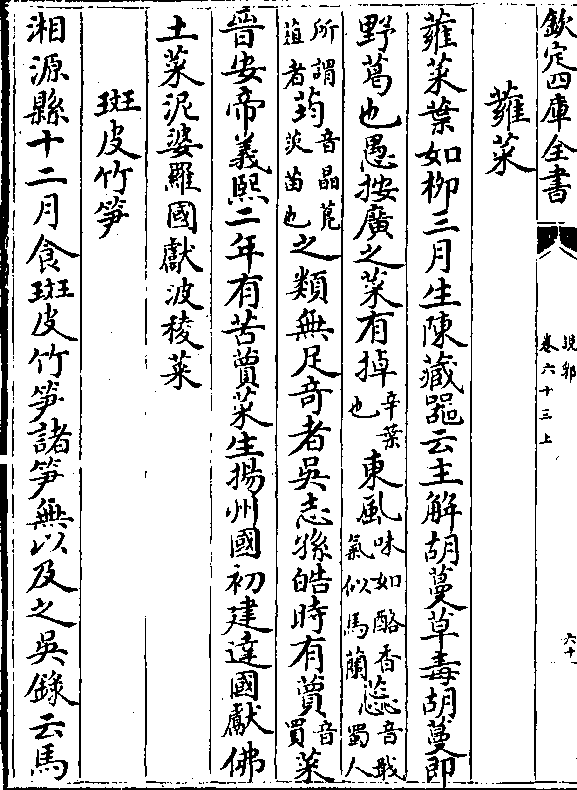 欽定四庫全書
說郛
卷六十三上
六十一
蕹菜
蕹菜葉如柳三月生陳藏器云主解胡蔓草毒胡蔓即
野葛也愚按廣之菜有掉辛葉也東風味如酪香氣似馬蘭蕊音戢蜀人
所謂葅者䓖音晶苨茨菌也之類無足奇者吳志孫皓時有蕒音買菜
晉安帝義熙二年有苦蕒菜生揚州國初建達國獻佛
土菜泥婆羅國獻波稜菜
斑皮竹笋
湘源縣十二月食斑皮竹笋諸笋無以及之吳錄云馬